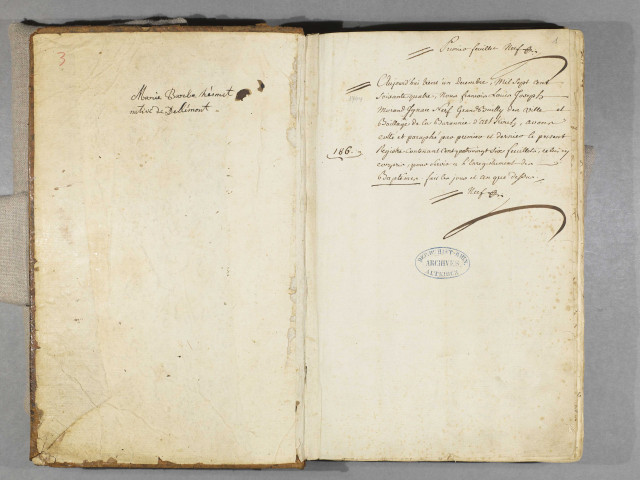 3
Marie Barbe
native de Dellémont
1
Premier feuillet Neef
Aujourd'hui trente un decembre, Mil Sept cent
soixante quatre, Nous françois Louis Joseph
Morand Ignace Neef Grand Bailly des ville et
Bailliage de la Baronnie d'Altkirch, avons
cotté et paraphé par premier et dernier le present
Registre contenant cent quatrevingt Six feuillets, celui cy
compris, pour servir à l'enregistrement des
Baptêmes. fait les jour et an que dessus.
Neef
1764
186
DÉP. DU HAUT-RHIN
ARCHIVES